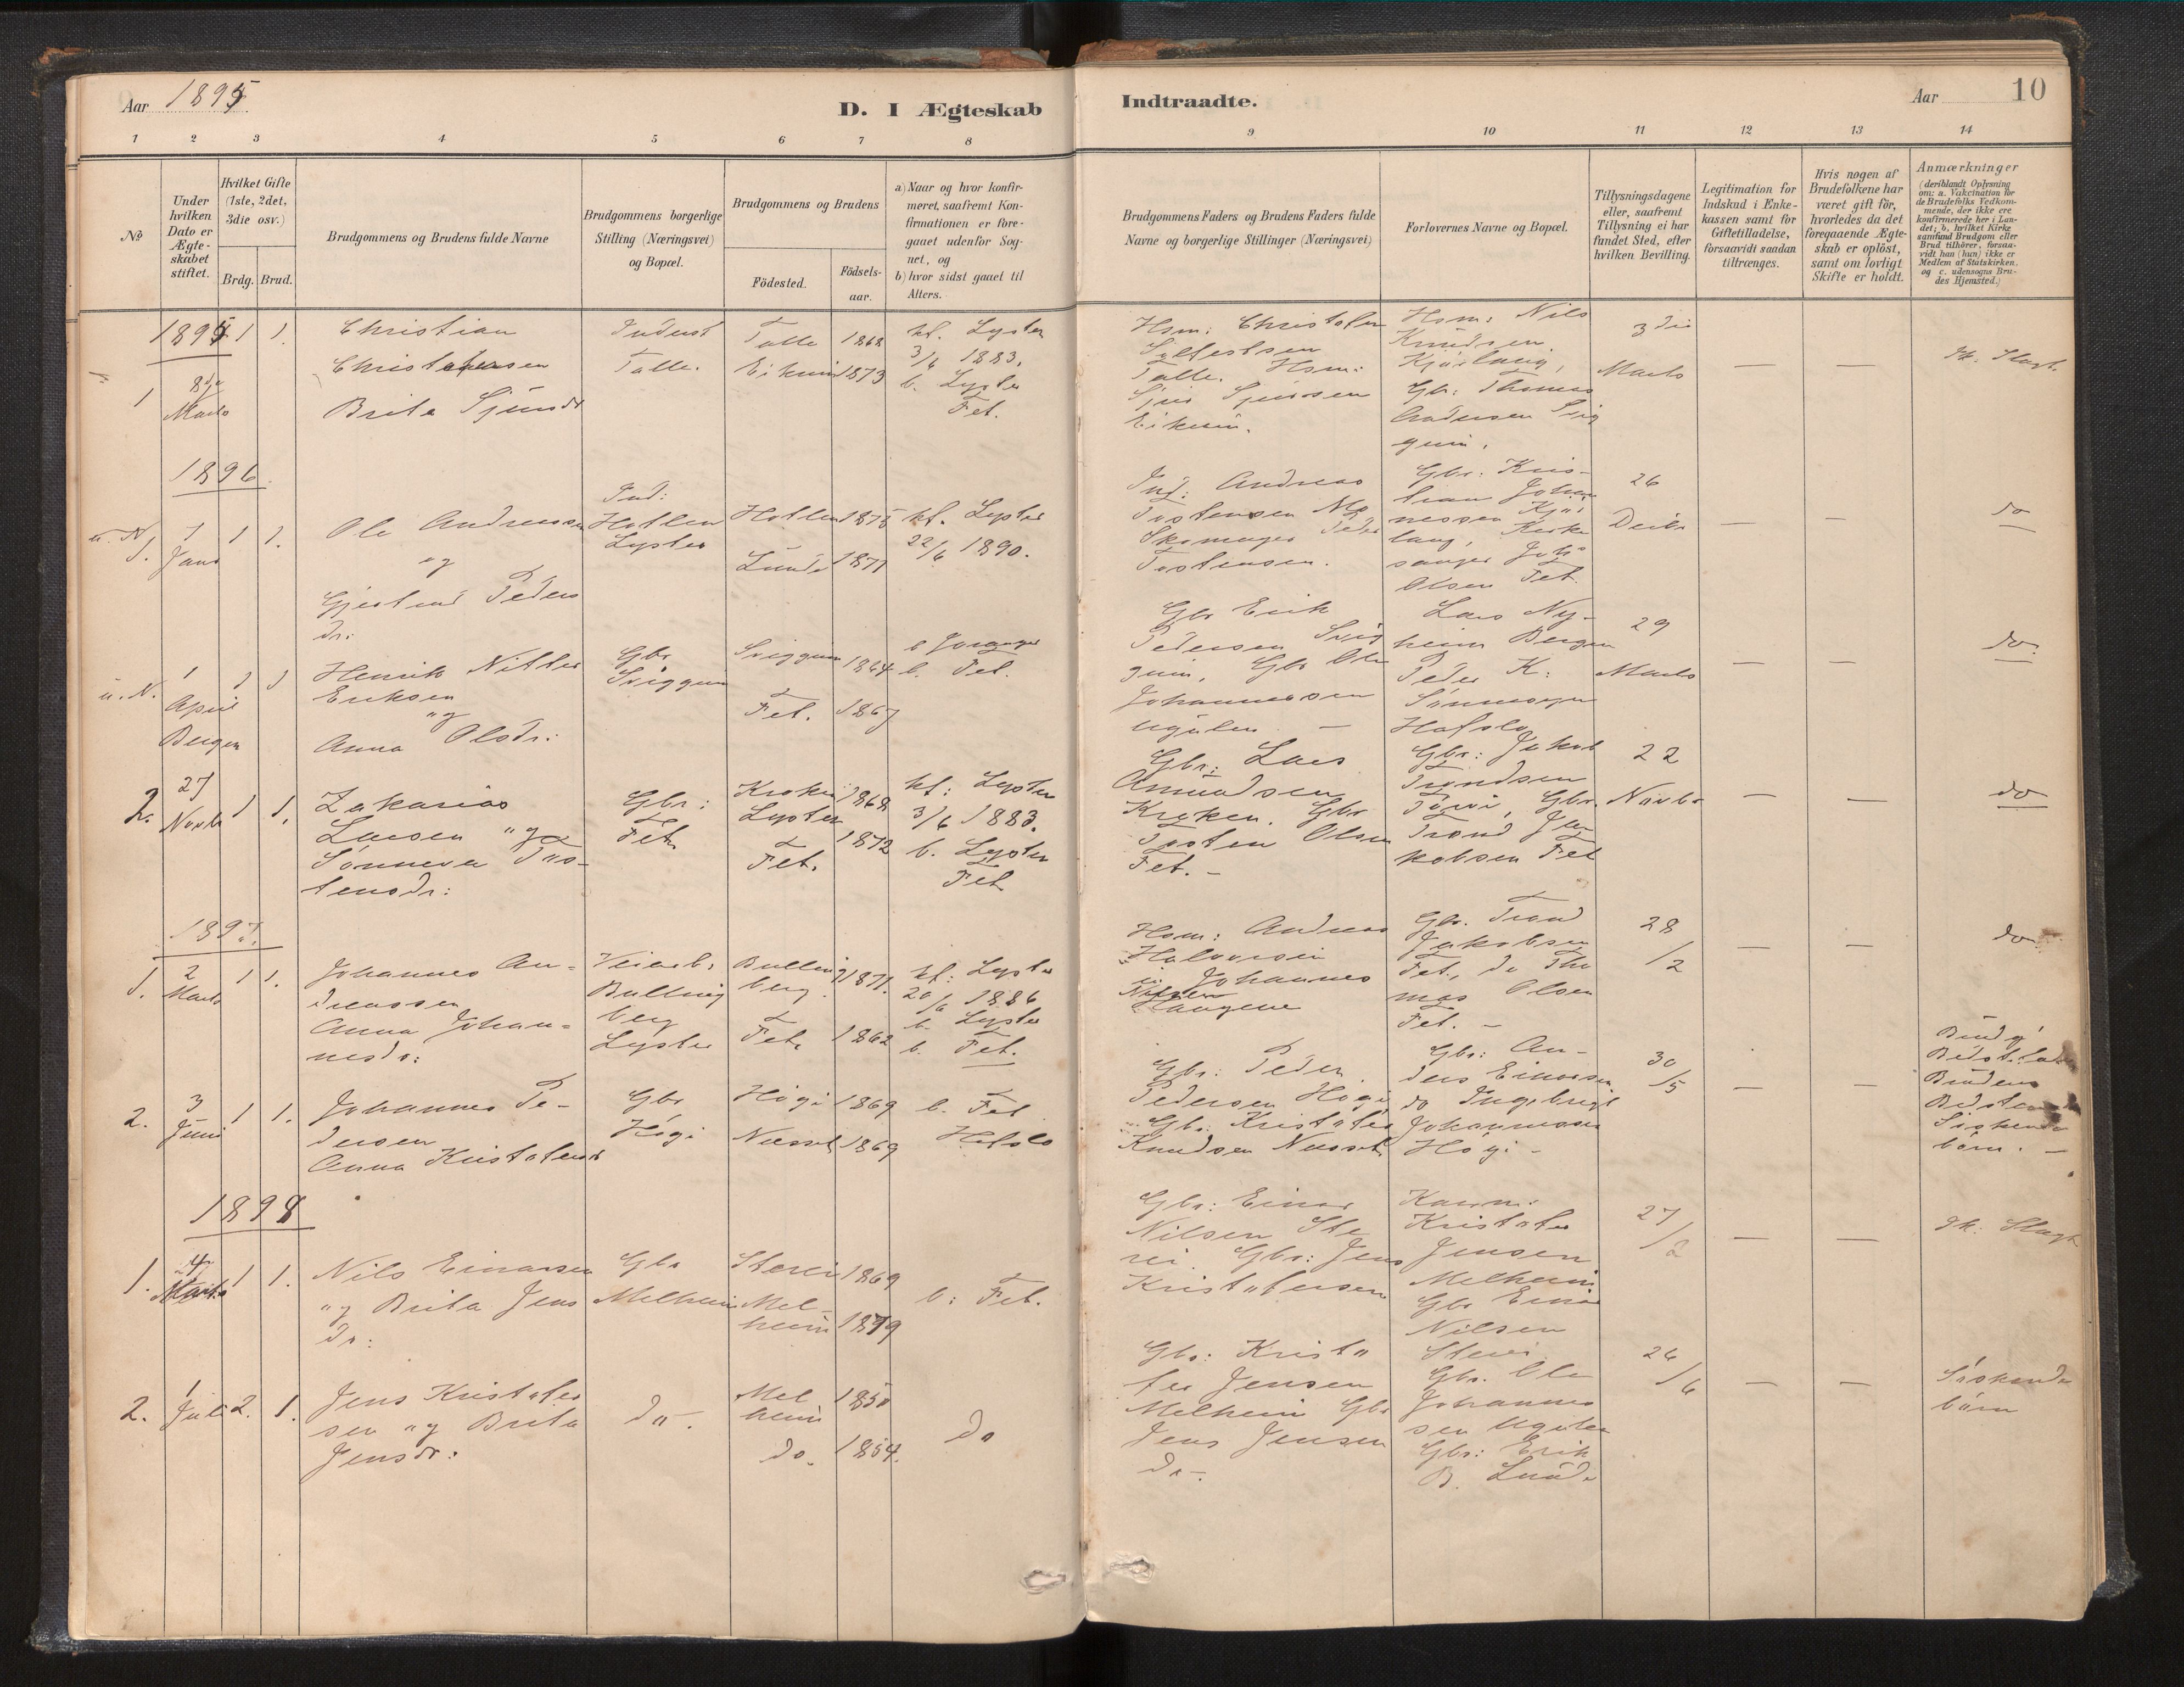 Aar 1895
D. I Ægteskab
Indtraadte.
Aar
10
1 2 3 4 5 6 7 8 9 10 11 12 13 14
No
Under hvilken Dato er Ægteskabet stiftet.
Hvilket Gifte (1ste, 2det, 3die osv.)
Brdg. Brud.
Brudgommens og Brudens fulde Navne
Brudgommens borgerlige Stilling (Næringsvei) og Bopæl.
Brudgommens og Brudens
Födested.
Födsels-aar.
a) Naar og hvor konfirmeret, saafremt Konfirmationen er foregaaet udenfor Sognet, og
b) hvor sidst gaaet til Alters.
Brudgommens Faders og Brudens Faders fulde Navne og borgerlige Stillinger (Næringsvei)
Forlovernes Navne og Bopæl.
Tillysningsdagene eller, saafremt Tillysning ei har fundet Sted, efter hvilken Bevilling.
Legitimation for Indskud i Enkekassen samt for Giftetilladelse, forsaavidt saadan tiltrænges.
Hvis nogen af Brudefolkene har været gift för, hvorledes da det foregaaende Ægteskab er oplöst, samt om lovligt Skifte er holdt.
Anmærkninger
(deriblandt Oplysning om: a. Vakcination for de Brudefolks Vedkommende, der ikke ere konfirmerede her i Landet; b. hvilket Kirkesamfund Brudgom eller Brud tilhörer, forsaavidt han (hun) ikke er Medlem af Statskirken, og c. udensogns Brudes Hjemsted.)
1895
1
8de Marts
1 1.
Christian
Christophersen
Brita Sjursdr
Indust
Talle.
Talle 1868
Eikum 1873
kf. Lyster
3/6 1883.
b. Lyster
Fet.
Hsm: Christofer
Talle. Hsm:
Sjur Sjursen
Eikum.
Hsm: Nils
Knudsen
Gbr: Thomas
Andersen Svig
gum.
3die
Marts
— —
1896
u. N.
1.
7 Janr
1 1.
Ole Andreassen
og
Gjertrud Peders
dr:
Ind:
Hollen
Lyster
Hollen 1875
Lunde 1871
kf. Lyster
22/6 1890.
Ind: Andreas
Tostensen
Skomager Peder
Tostensen.
Gbr: Kris-
tian Johan
nessen
lang, Kirke
sanger Johs
Olsen Fet.
26
Decbr
— —
do
u. N.
1 April
Bergen
1 1
Henrik Nitter
Eriksen
og
Anna Olsdr:
Gbr
Sviggum
Sviggum 1864
Fet. 1867
b. Fet.
Gbr Erik
Pedersen Svig
gum, Gbr Ole
Johannessen
Ugulen. —
Lars Ny-
heim Bergen
Peder K:
Hafslo
29
Marts
— —
do.
2.
27 Novbr
1 1.
Zakarias
Larsen og
Sönneva Tos-
tensdr:
Gbr:
Fet
Kroken 1868
Lyster
1872
Fet.
kf: Lyster
3/6 1883.
b. Lyster
Fet
Gbr: Lars
Amundsen
Kroken. Gbr
Tosten Olsen
Fet. -
Gbr: Jakob
Trondsen
Gbr.
Trond Ja
kobsen Fet
22
Novbr
— —
do
1897.
1.
2 Marts
1 1.
Johannes An-
dreassen
Anna Johan-
nesdr:
Bolling
berg
Lyster
Bolling 1871.
berg
Fet. 1862
kf: Lyster
20/6 1886
b. Lyster
b. Fet.
Hsm: Andreas
Halvorsen
Johannes
Haugene
Gbr. Trond
Jakobsen
Fet., do Tho
mas Olsen
Fet. -
28
/2
— —
do
2.
3 Juni
1 1.
Johannes Pe-
dersen
Anna Kristofersdr
Gbr
Högi
Högi 1869
Nesset 1869
b. Fet
Hafslo
Gbr: Peder
Pedersen Högi
Gbr. Kristofer
Knudsen Nesset
Gbr: An-
ders Einarsen
do Ingebrigt
Johannessen
Högi -
30
/5
— —
Brudg
Brudens
Sösken
börn. —
1898
1.
4 Marts
1 1.
Nils Einarsen
og Brita Jens
dr:
Gbr
Melheim
Sterri 1869
Mel-
heim 1879
b: Fet.
Gbr: Einar
Nilsen Ste
rri. Gbr: Jens
Kristofersen
Kaarm:
Kristofer
Jensen
Melheim
Gbr Einar
Nilsen
Sterri
27
/2
— —
2.
1 Juli
2. 1.
Jens Kristofer
sen og Brita
Jensdr:
do.
Mel 1850
heim
do. 1854.
do
Gbr: Kristo
fer Jensen
Melheim Gbr
Jens Jensen
do.
Gbr. Ole
Johannes
sen Ugulen
Gbr: Erik
B. Lunde
26
/6
— —
Söskende
börn